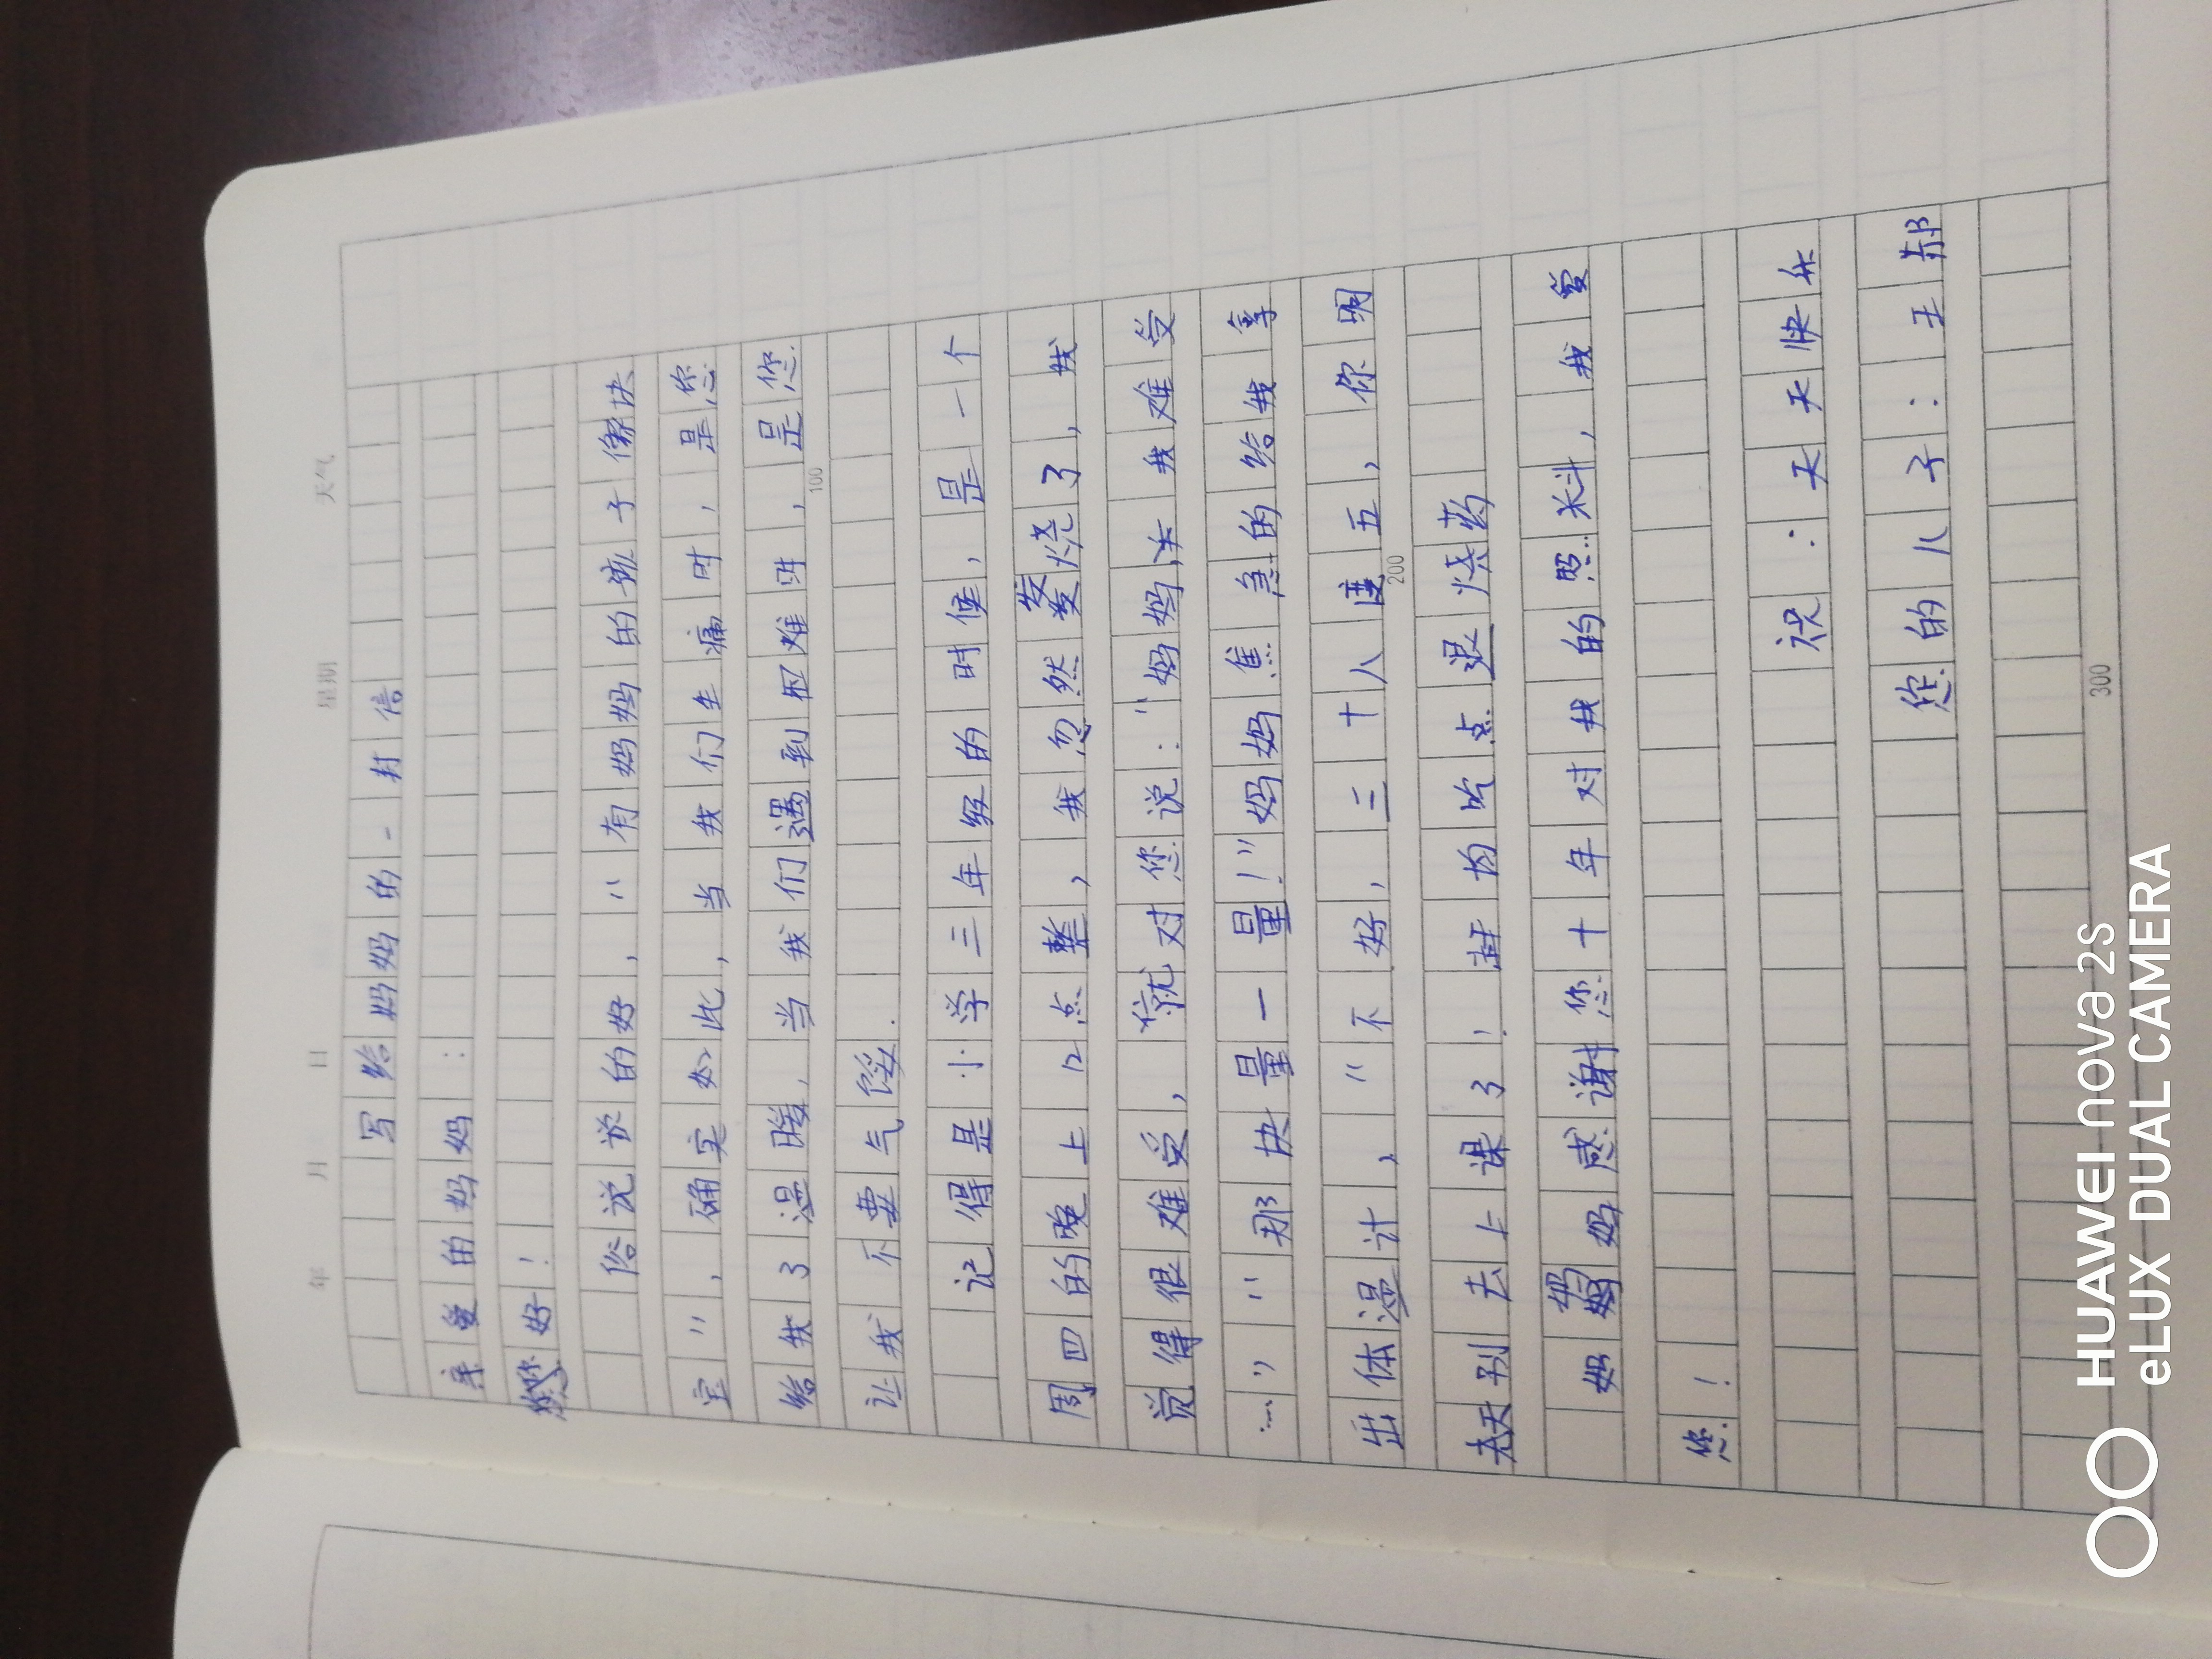 年 月 日 星期 天气
写给妈妈的一封信
亲爱的妈妈:
您好!
俗说说的好,“有妈妈的孩子像块
宝”,确实如此,当我们生病时,是您
给我了温暖,当我们遇到困难时,是您
100
让我不要气馁.
记得是小学三年级的时候,是一个
周四的晚上12点整,我忽然发烧了,我
觉得很难受,就对您说:“妈妈,我难受
……”,“那快量一量!”妈妈焦急的给我拿
出体温计,“不好,三十八度五,你明
200
天别去上课了!赶均吃点退烧药
妈妈感谢您十年对我的照料,我爱
您!
祝:天天快乐
您的儿子:王郝
300
HUAWEI nova 2S
eLUX DUAL CAMERA